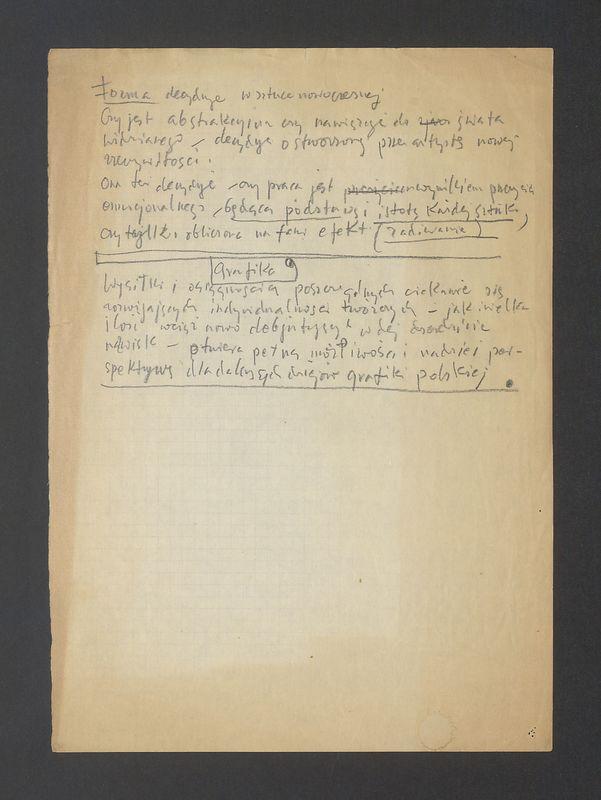 Forma decyduje w sztuce nowoczesnej
Czy jest abstrakcyjna czy nawiązuje do świata
widzianego, decyduje o stworzonej przez artystę nowej
rzeczywistości.
Ona też decyduje czy praca jest wynikiem przeżycia
emocjonalnego, będącą podstawą i istotą każdej sztuki,
czy tylko obliczona na tani efekt (zadziwienia)
Grafika
Wysiłki i osiągnięcia poszczególnych ciekawie się
rozwijających indywidualności twórczych – jak i wielka
ilość wciąż nowo debiutujących w tej dziedzinie
nazwisk – otwiera pełną możliwości i nadziei per-
spektywę dla dalszych dziejów grafiki polskiej